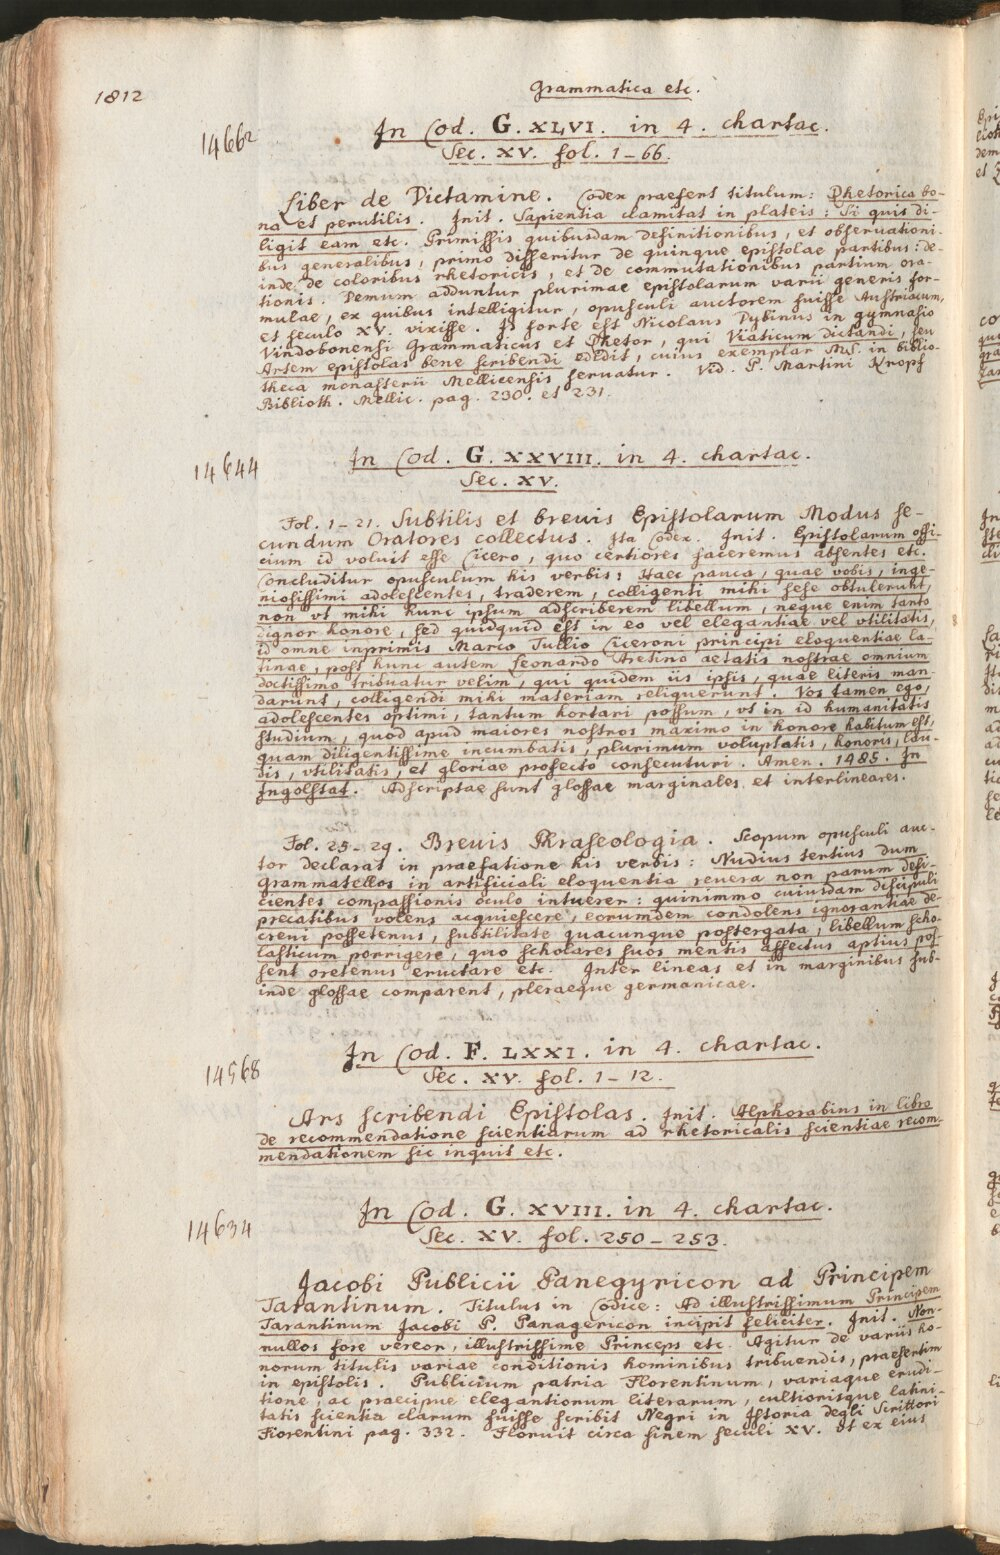 1812
Grammatica etc.
14662
In Cod. G. XLVI. in 4. chartac.
Sec. XV. fol. 1-66.
Liber de Dictamine. Codex praefert titulum: Rhetorica bo-
na et perutilis. Init. Sapientia clamitat in plateis: Si quis di-
ligit eam etc. Primissis quibusdam definitionibus, et observationi-
bus generalibus, primo disseritur de quinque epistolae partibus: de-
inde de coloribus rhetoricis, et de commutationibus partium ora-
tionis. Demum adduntur plurimae epistolarum varii generis for-
mulae, ex quibus intelligitur, opusculi auctorem fuisse Austriacum,
et seculo XV. vixisse. Is forte est Nicolaus Dybinus in gymnasio
Vindobonensi Grammaticus et Rhetor, qui Viaticum dictandi, seu
Artem epistolas bene scribendi edidit, cuius exemplar MS. in biblio-
theca monasterii Mellicensis servatur. Vid. P. Martini Kropf
Biblioth. Mellic. pag. 230. et 231.
14644
In Cod. G. XXVIII. in 4. chartac.
Sec. XV.
Fol. 1-21. Subtilis et brevis Epistolarum Modus se-
cundum Oratores collectus. Ita Codex. Init. Epistolarum offi-
cium id voluit esse Cicero, quo certiores faceremus absentes etc.
Concluditur opusculum his verbis: Haec pauca, quae vobis, inge-
niosissimi adolescentes, traderem, colligenti mihi sese obtulerunt,
non vt mihi hunc ipsum adscriberem libellum, neque enim tanto
dignor honore, sed quidquid est in eo vel elegantiae vel vtilitatis,
id omne inprimis Marco Tullio Ciceroni principi eloquentiae la-
tinae, post hunc autem Leonardo Aretino aetatis nostrae omnium
doctissimo tribuatur velim, qui quidem iis ipsis, quae literis man-
darunt, colligendi mihi materiam reliquerunt. Vos tamen ego,
adolescentes optimi, tantum hortari possum, vt in id humanitatis
studium, quod apud maiores nostros maximo in honore habitum est,
quam diligentissime incumbatis, plurimum voluptatis, honoris, lau-
dis, vtilitatis, et gloriae profecto consecuturi. Amen. 1485. In
Ingolstat. Adscriptae sunt glossae marginales et interlineares.
Fol. 25-29. Brevis Phraseologia. Scopum opusculi auc-
tor declarat in praefatione his verbis: Nudius tertius dum
grammatellos in artificiali eloquentia revera non parum defi-
cientes compassionis oculo intuerer: quinimmo cuiusdam discipuli
precatibus volens acquiescere, eorumdem condolens ignorantiae de-
crevi possetenus, subtilitate quacunque postergata, libellum scho-
lasticum porrigere, quo scholares suos mentis affectus aptius pos-
sent oretenus eructare etc. Inter lineas et in marginibus sub-
inde glossae comparent, pleraeque germanicae.
14568
In Cod. F. LXXI. in 4. chartac.
Sec. XV. fol. 1-12.
Ars scribendi Epistolas. Init. Alphorabius in libro
de recommendatione scientiarum ad rhetoricalis scientiae recom-
mendationem sic inquit etc.
14634
In Cod. G. XVIII. in 4. chartac.
Sec. XV. fol. 250-253.
Jacobi Publicii Panegyricon ad Principem
Tarantinum. Titulus in Codice: Ad illustrissimum Principem
Tarantinum Jacobi P. Panagericon incipit feliciter. Init. Non-
nullos fore vereor, illustrissime Princeps etc. Agitur de variis ho-
norum titulis variae conditionis hominibus tribuendis, praesertim
in epistolis. Publicium patria Florentinum, variaque erudi-
tione, ac praecipue elegantiorum literarum, cultiorisque latini-
tatis scientia clarum fuisse scribit Negri in Istoria degli Scrittori
Fiorentini pag. 332. Floruit circa finem seculi XV. Et ex eius